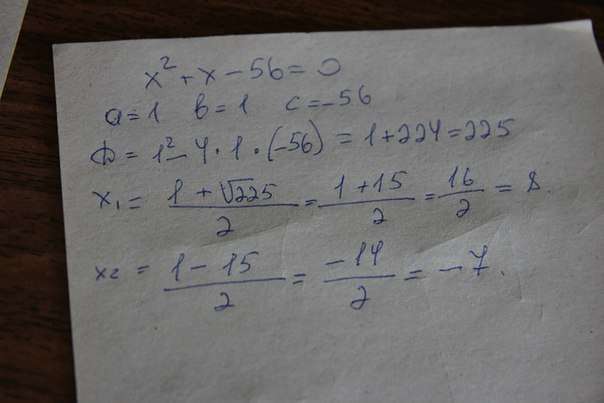 x² + x − 56 = 0
a = 1 b = 1 c = −56
D = 1² − 4 · 1 · (−56) = 1 + 224 = 225
x₁ = (1 + √225) / 2 = (1 + 15) / 2 = 16 / 2 = 8.
x₂ = (1 − 15) / 2 = −14 / 2 = −7.